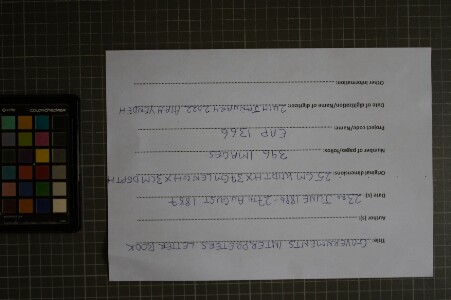 Title: GOVERNMENTS INTERPRETERS LETTER BOOK
Author (s):
Date (s): 23RD JUNE 1886 - 27TH AUGUST 1887
Original dimensions: 25CM WIDTH X 39CM LENGTH X 3CM DEPTH
Number of pages/folios: 396 IMAGES
Project code/Name: EAP 1366
Date of digitization/Name of digitizer: 24TH JANUARY 2022
Other information: